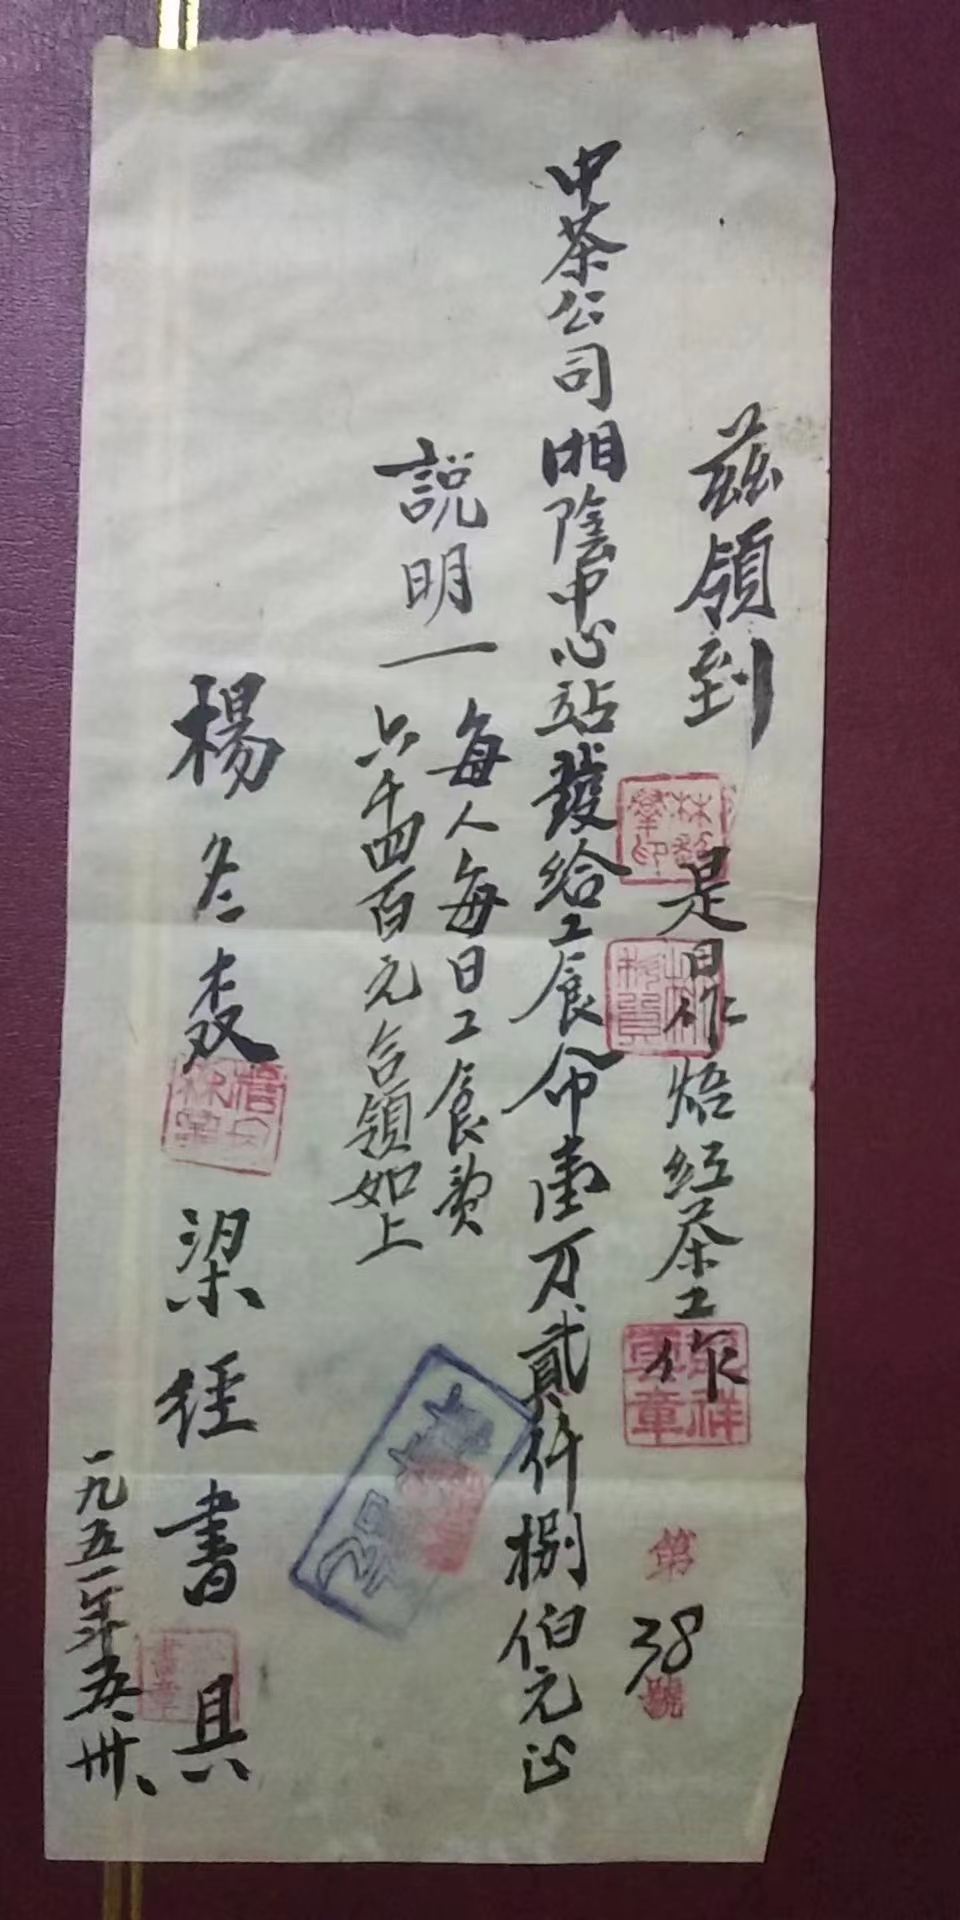 茲領到
是日作焙红茶工作
第38號
中茶公司湘陰中心站發給工食命壹万貳仟捌伯元正
説明一
每人每日工食費
六千四百元合領如上
楊冬森 梁経書 具
一九五一年五、卅、